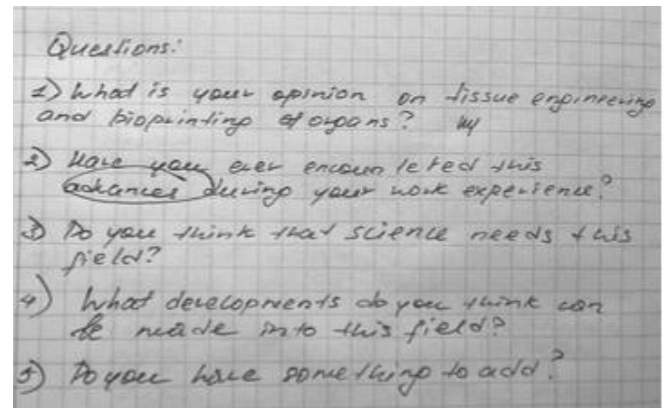 Questions:
1) What is your opinion on tissue engineering
and bioprinting of organs?
2) Have you ever encountered this
advances during your work experience?
3) Do you think that science needs this
field?
4) What developments do you think can
be made into this field?
5) Do you have something to add?